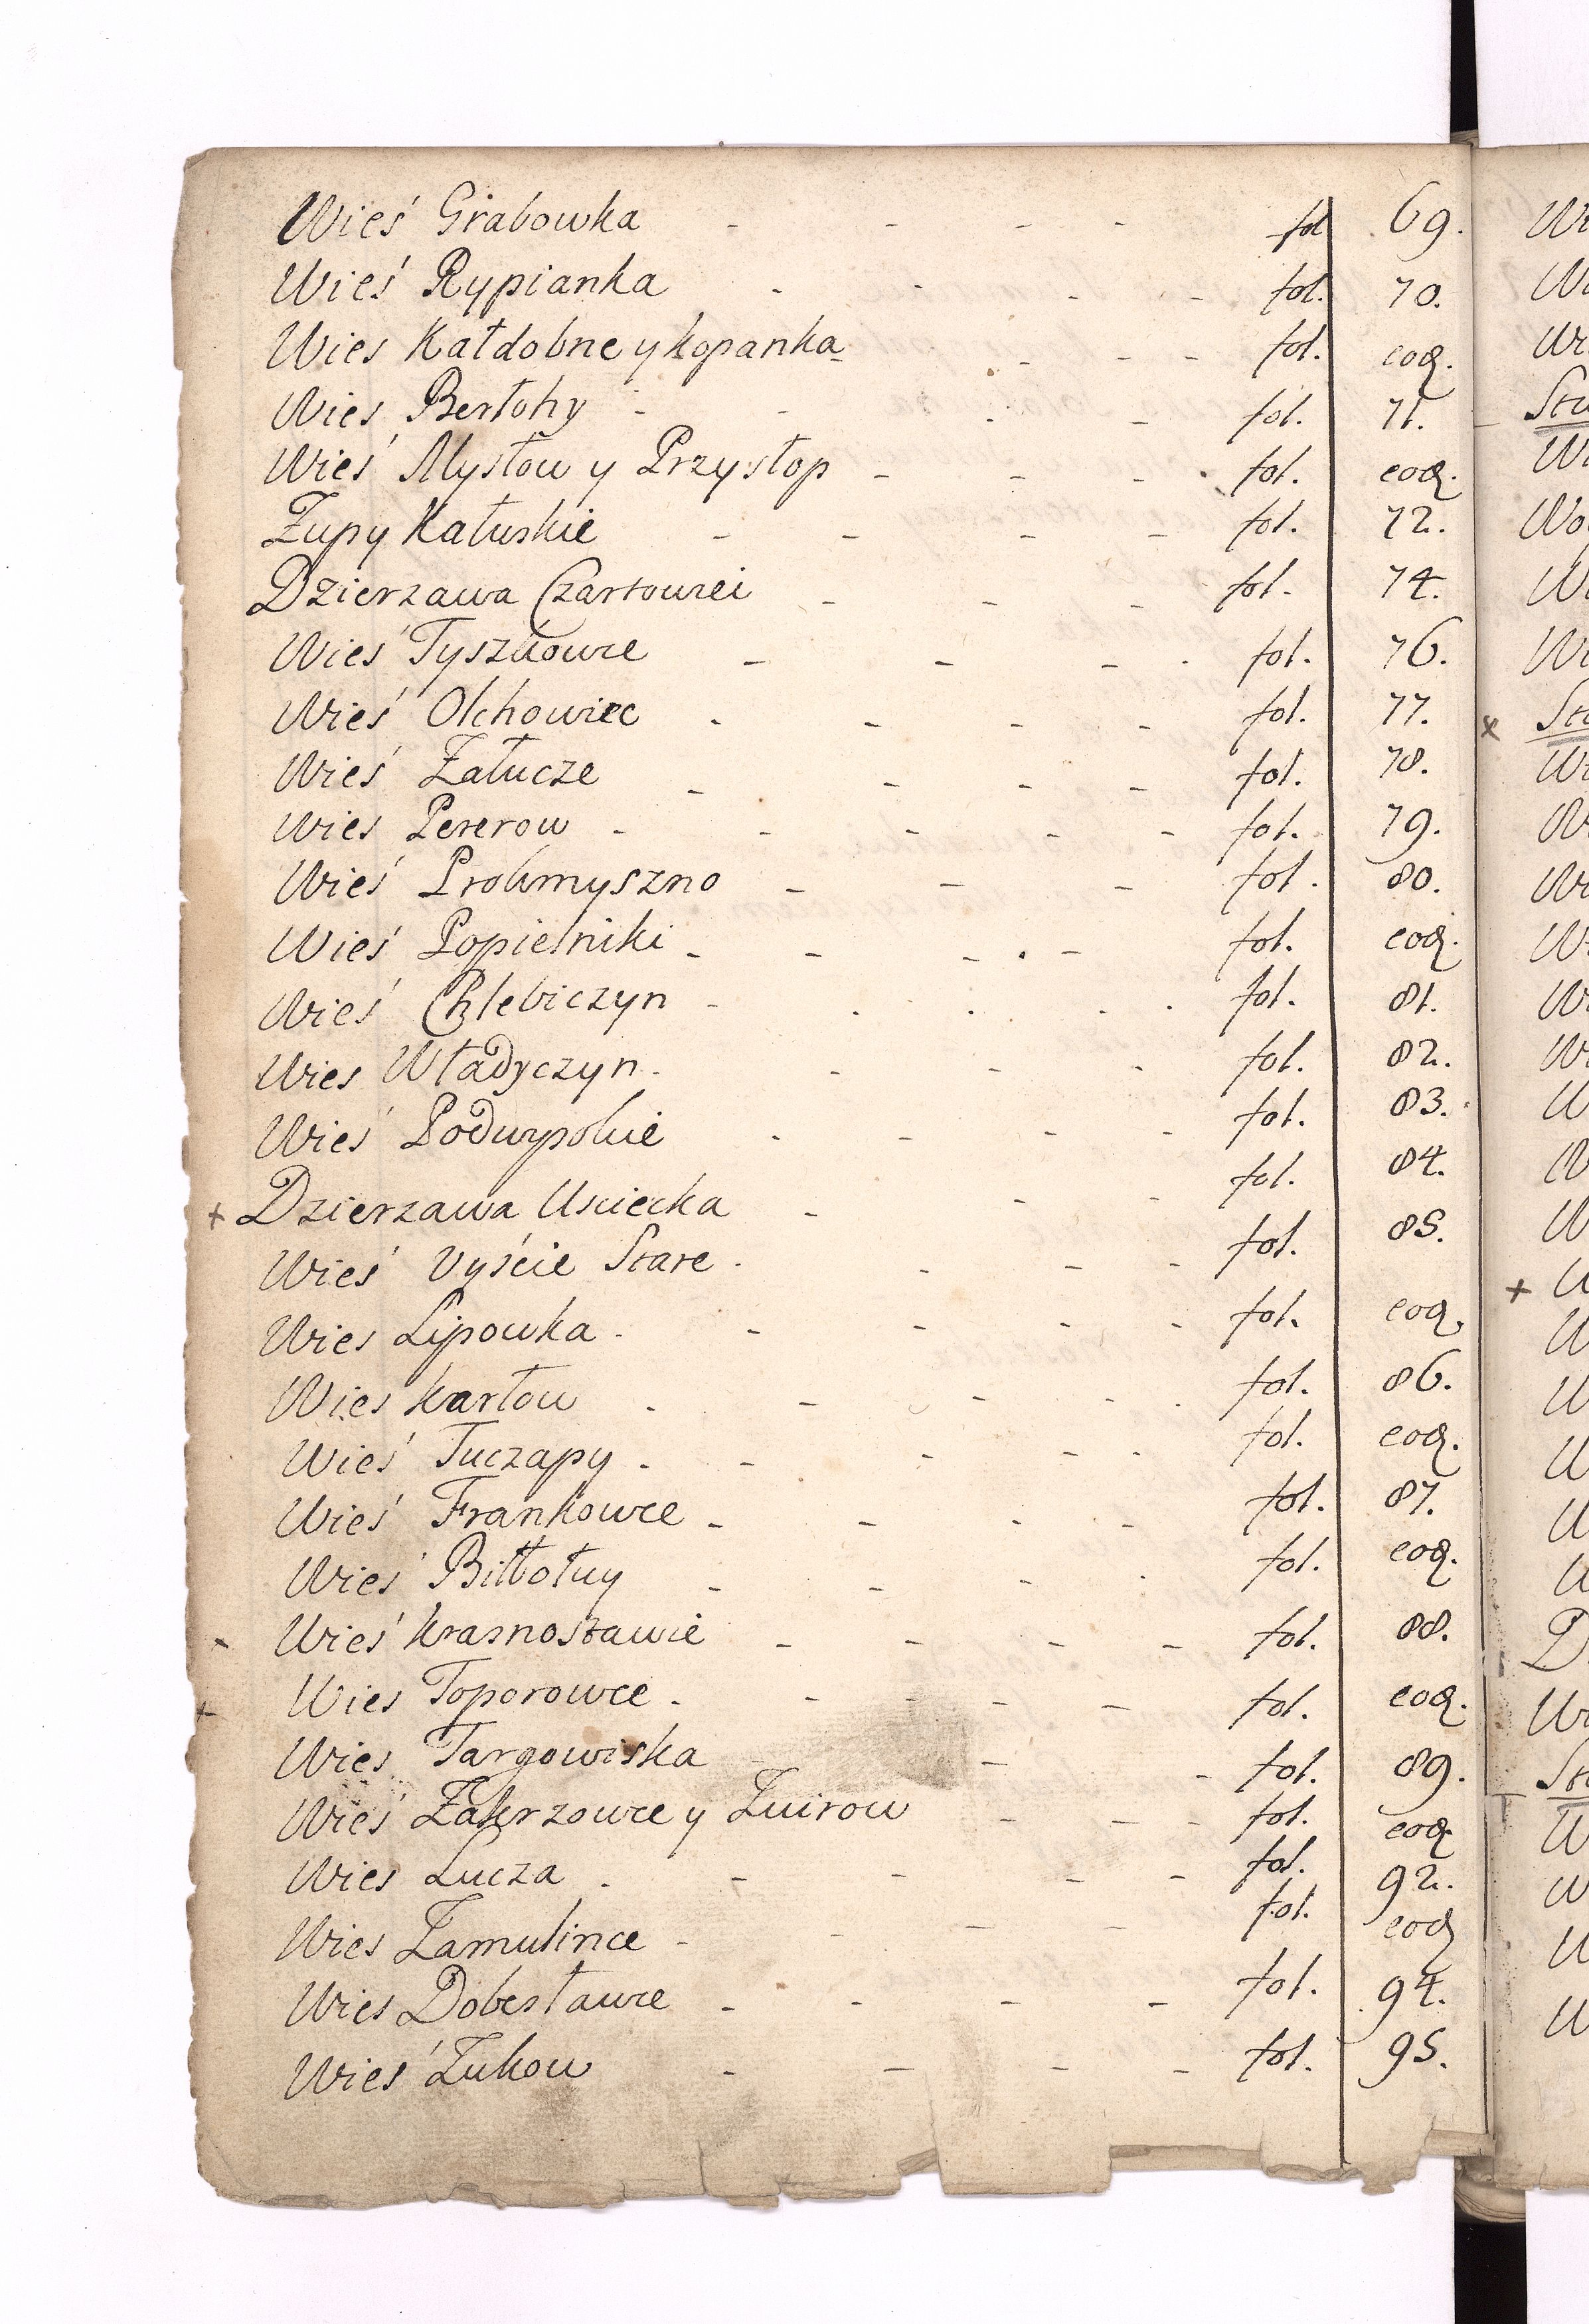 Wieś Grabowka - - - - fol 69.
Wieś Rypianka - - - - fol. 70.
Wies Kałdobne y kopanka - - - fol. eoq.
Wies Berłohy - - - - fol. 71.
Wieś Mysłow y Przysłop - - - fol. eoq.
Żupy Kałuskie - - - - fol. 72.
Dzierzawa Czartowiei - - - fol. 74.
Wieś Tyszkowce - - - - fol. 76.
Wieś Olchowiec - - - - fol. 77.
Wieś Załucze - - - - fol. 78.
Wies Pererow - - - - - fol. 79.
Wieś Probimyszno - - - fol. 80.
Wieś Popielniki - - - - fol. eoq.
Wieś Chlebiczyn - - - - fol. 81.
Wies Władyczyn - - - - fol. 82.
Wieś Podwysokie - - - - fol. 83.
+ Dzierzawa Usciecka - - - fol. 84.
Wieś Uyście Stare - - - - fol. 85.
Wies Lipowka - - - - - fol. eoq.
Wies karłow - - - - fol. 86.
Wieś Tuczapy - - - - - fol. eoq.
Wieś Frankowce - - - - fol. 87.
Wieś Biłłołuy - - - - fol. eoq.
Wieś krasnostawie - - - - fol. 88.
+ Wies Toporowce - - - - - fol. eoq.
Wies Targowiska - - - fol. 89.
Wieś Zakrzowce y Zuirow - - - fol. eoq
Wies Lucza - - - - - fol. 92.
Wies Zamulince - - - - fol. eoq
Wies Dobesławce - - - - fol. 94.
Wieś Żukow - - - - fol. 95.